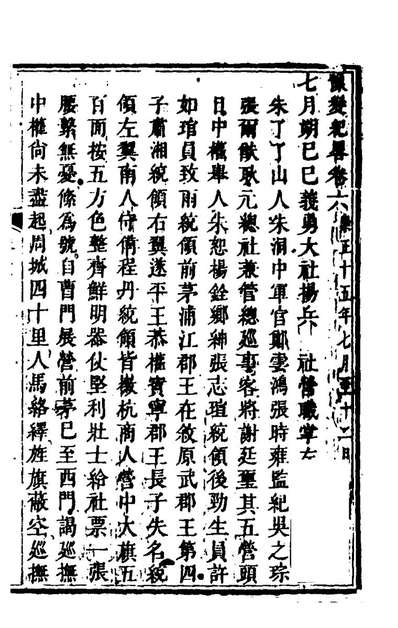 變紀畧卷六 崇正十五年七月至十二月
七月朔己巳義勇大社楊兵 社營職掌左
朱丁了山人朱洞中軍官鄭雲鴻張時雍監紀吳之琮
張爾猷耿元總社兼管總巡事客將謝延璽其五營頭
日中權舉人朱恕楊銓鄉紳張志瑄統領後勁生員許
如琯員致雨統領前茅浦江郡王在 原武郡王第四
子肅湘統領右翼遂平王恭權寳寧郡王長子失名統
領左翼南人付倩程丹統領皆徽杭商人營中大旗五
百面按五方色整齊鮮明器仗堅利壯士給社票一張
腰繫無憂絛為號自曹門展營前茅巳至西門謁巡撫
中權尙未盡起周城四十里人馬絡繹旌旗蔽空巡撫